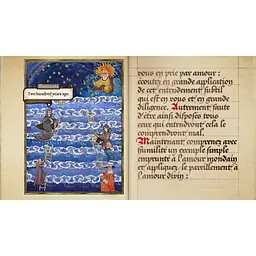 Two hundred years ago,
vous en prie par amour :
écoutez en grande application
de cet entendement subtil
qui est en vous et en grande
diligence. Autrement faute
d'être ainsi disposés tous
ceux qui entendront cela le
comprendront mal.
Maintenant comprenez avec
humilité un exemple simple
emprunté à l'amour mondain
et appliquez-le pareillement à
l'amour divin :